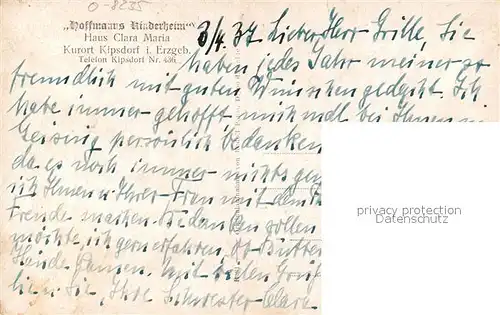 O-8235
„Hoffmanns Kinderheim"
Haus Clara Maria
Kurort Kipsdorf i. Erzgeb.
Telefon Kipsdorf Nr. 436
3/4. 37 Lieber Herr Grille, Sie
haben jedes Jahr meiner so
freundlich mit guten Wünschen gedacht. Ich
habe immer gehofft mich mal bei Ihnen in
Geising persönlich bedanken
da es noch immer nichts
ich Ihnen u Ihrer Frau mit dem
Freude machen. Bedanken
möchte ich gern erfahren, ob
Hände kamen. Mit
Sie, Ihre Schwester Clara
privacy protection
Datenschutz